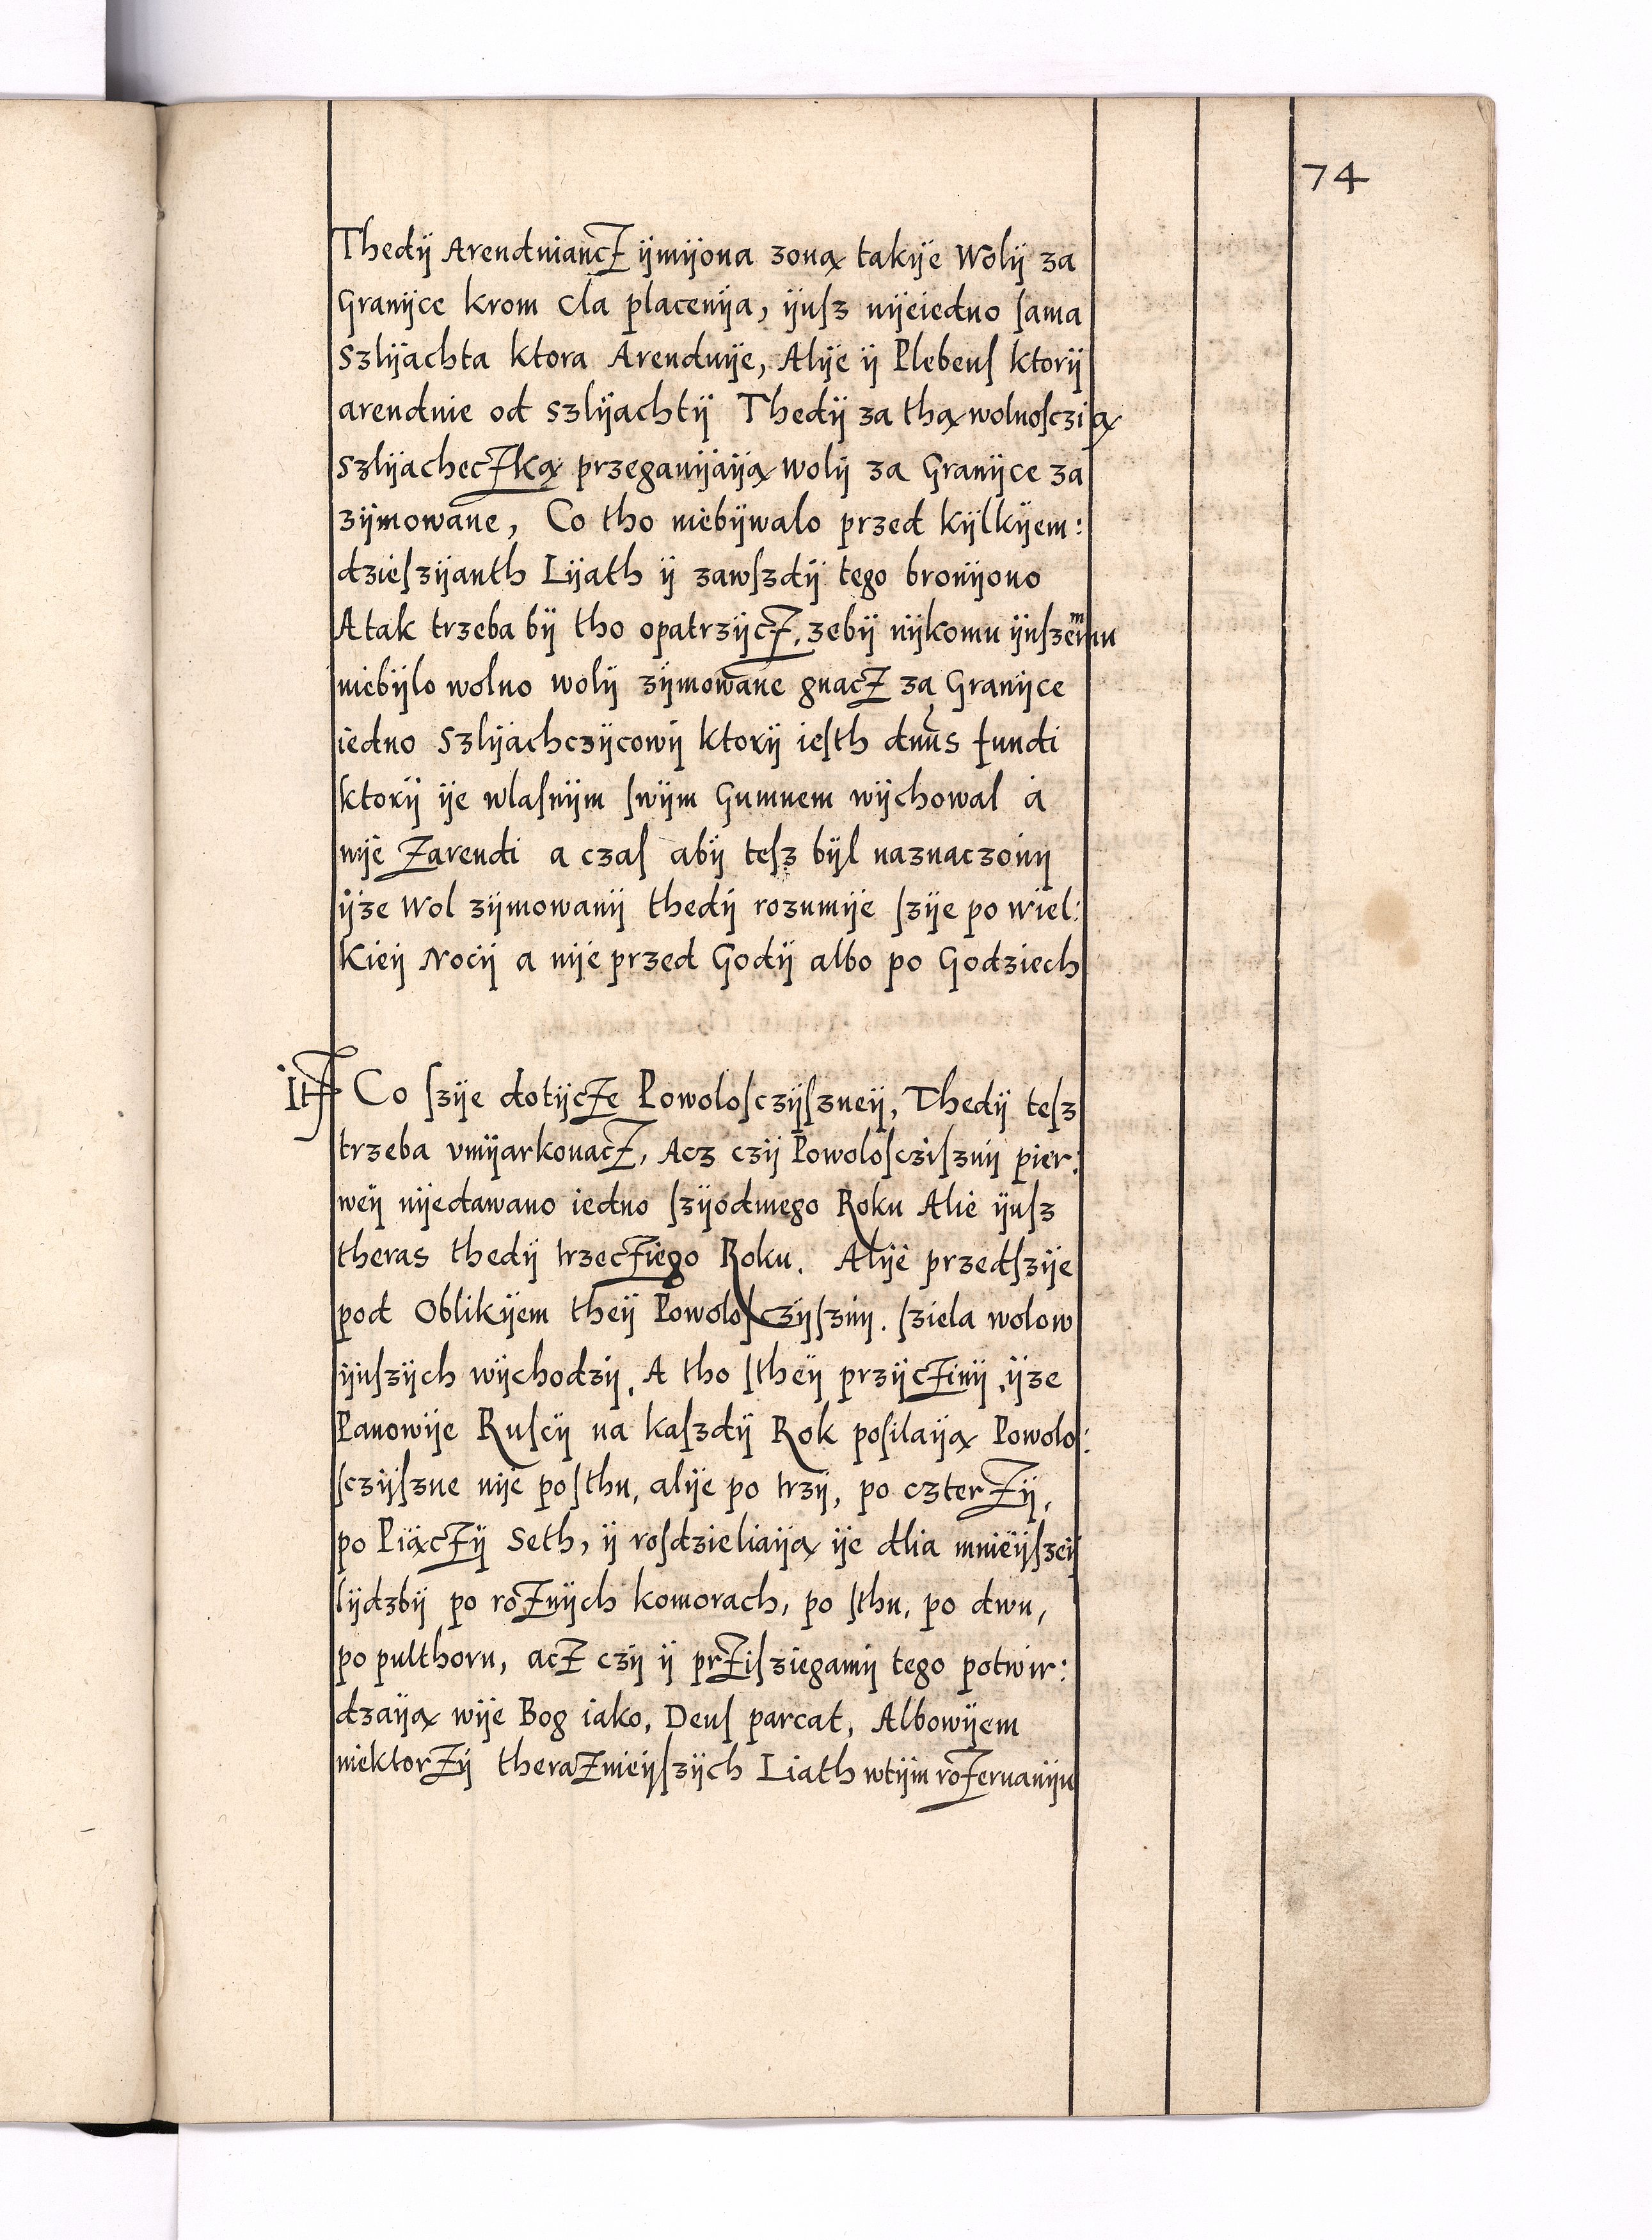 74
Thedÿ Arenduiancz ÿmÿona zoną takÿe Wolÿ za
Granÿce krom cla placenÿa, ÿuſz nÿeiedno ſama
Szlÿachta ktora Arenduÿe, Alÿe ÿ Plebeuſ ktorÿ
arenduie od szlÿachtÿ Thedÿ za thą wolnoſczią
szlÿacheczką przeganÿaÿą wolÿ za Granÿce za
zÿmowane, Co tho niebÿwalo przed kÿlkÿem:
dzieſzÿanth Lÿath ÿ zawſzdÿ tego bronÿono
A tak trzeba bÿ tho opatrzÿcz, zebÿ nÿkomu ÿnſzemu
niebÿlo wolno wolÿ zÿmowane gnacz za Granÿce
iedno Szlÿachczÿcowÿ ktorÿ ieſth dnus fundi
ktorÿ ÿe wlaſnÿm ſwÿm Gumnem wÿchowal a
nÿe Zarendi a czaſ abÿ teſz bÿl naznaczonÿ
ÿze Wol zÿmowanÿ thedÿ rozumÿe ſzÿe po wiel:
kieÿ Nocÿ a nÿe przed Godÿ albo po Godziech
It Co ſzÿe dotÿcze Powoloſczÿſzneÿ, Thedÿ teſz
trzeba vmÿarkouacz, Acz czÿ Powoloſcziſznÿ pier:
weÿ nÿedawano iedno ſzÿodmego Roku Alie ÿuſz
theras thedÿ trzecziego Roku. Alÿe przedſzÿe
pod Oblikÿem theÿ Powoloſczÿſznÿ. ſziela wolow
ÿnſzÿch wÿchodzÿ, A tho ſtheÿ przÿczinÿ, ÿze
Panowÿe Ruſcÿ na kaſzdÿ Rok poſilaÿą Powolo:
ſczÿſzne nÿe po ſthu, alÿe po trzÿ, po czterzÿ,
po Piączÿ Seth, ÿ roſdzieliaÿą ÿe dlia mnieÿſzeÿ
lÿdzbÿ po roznÿch komorach, po ſthu, po dwu,
po pulthoru, acz czÿ ÿ prziſziegamÿ tego potwir:
dzaÿą wÿe Bog iako, Deuſ parcat, Albowÿem
niektorzÿ theraznieÿſzÿch Liath wtÿm rozeruanÿu